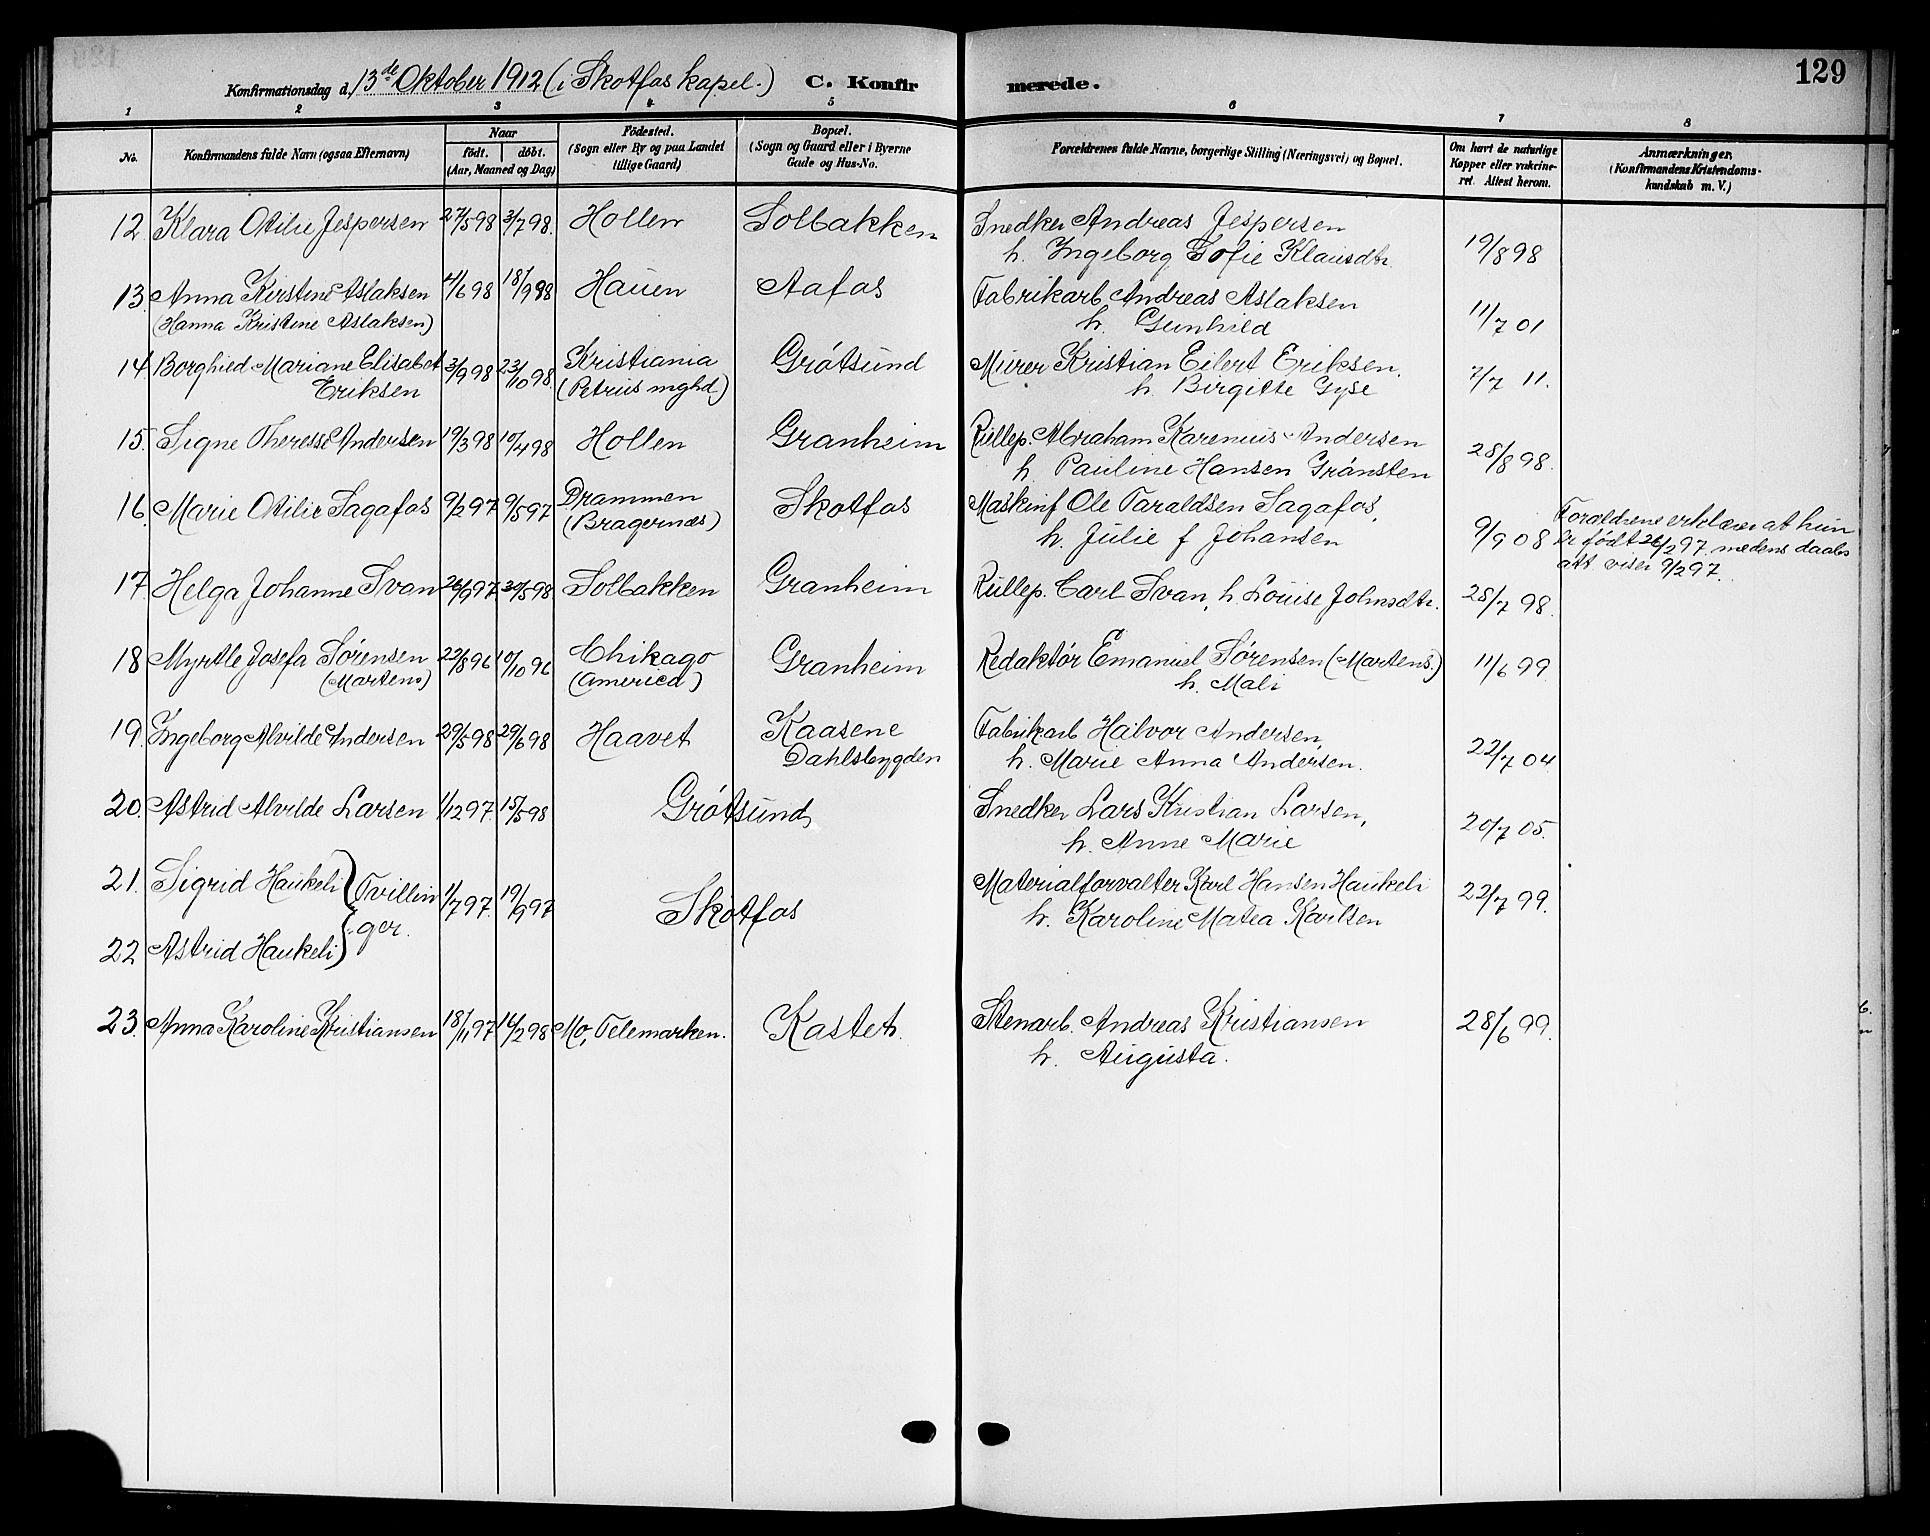 Konfirmationsdag d. 13de Oktober 1912 (i Skotfos kapel.) C. Konfirmerede. 129
1 2 3 4 5 6 7 8
No. Konfirmandens fulde Navn (ogsaa Efternavn) Naar født. døbt. (Aar, Maaned og Dag) Fødested. (Sogn eller By og paa Landet tillige Gaard) Bopæl. (Sogn og Gaard eller i Byerne Gade og Hus-No. Forældrenes fulde Navne, borgerlige Stilling (Næringsvei) og Bopæl. Om havt de naturlige Kopper eller vakcineret. Attest herom. Anmærkninger. (Konfirmandens Kristendomskundskab m. V.)
12. Klara Otilie Jespersen 27/5 98 3/7 98. Hollen Solbakken Snedker Andreas Jespersen
h. Ingeborg Sofie Klausdtr. 19/8 98
13. Anna Kirstine Aslaksen 4/6 98 18/9 98 Hauen Aafos Fabrikarb. Andreas Aslaksen
(Hanna Kristine Aslaksen) h. Gunhild 11/7 01
14. Borghild Mariane Elisabet 3/9 98 23/10 98. Kristiania Grøtsund Murer Kristian Eilert Eriksen.
Eriksen (Petrus mghd.) h. Birgitte Gyse 7/7 11.
15. Signe Therese Andersen 19/3 98 10/4 98 Hollen Granheim Rullep. Abraham Karenius Andersen
h. Pauline Hansen Grønsten 28/8 98.
16. Marie Otilie Sagafos 9/2 97 9/5 97 Drammen Skotfos Maskinf Ole Taraldsen Sagafos,
(Bragernæs) h. Julie f Johansen 9/9 08 Forældrene erklærer at hun
er født 26/2 97 medens daabs
att viser 9/2 97.
17. Helga Johanne Svan 26/9 97 30/5 98 Solbakken Granheim Rullep. Carl Svan, h. Louise Johnsdtr. 28/7 98.
18 Myrtle Josefa Sørensen 22/8 96 10/10 96 Chikago Granheim Redaktør Emanuel Sørensen (Martens.) 11/6 99
(Martens) (America) h. Mali
19. Ingeborg Alvilde Andersen 29/5 98 29/6 98 Haavet Kaasene Fabrikarb Halvor Andersen,
Dahlsbygden h. Marie Anna Andersen. 22/7 04
20. Astrid Alvilde Larsen 1/12 97. 15/5 98 Grøtsund Snedker Lars Kristian Larsen,
h. Anne Marie 20/7 05.
21. Sigrid Haukeli } Tvillin 1/7 97. 19/9 97 Skotfos Materialforvalter Karl Hansen Haukeli 22/7 99.
ger. h. Karoline Matea Karlsen
22 Astrid Haukeli }
23. Anna Karoline Kristiansen 18/11 97 14/2 98 Mo, Telemarken. Kastet. Stenarb. Andreas Kristiansen 28/6 99.
h. Augusta.